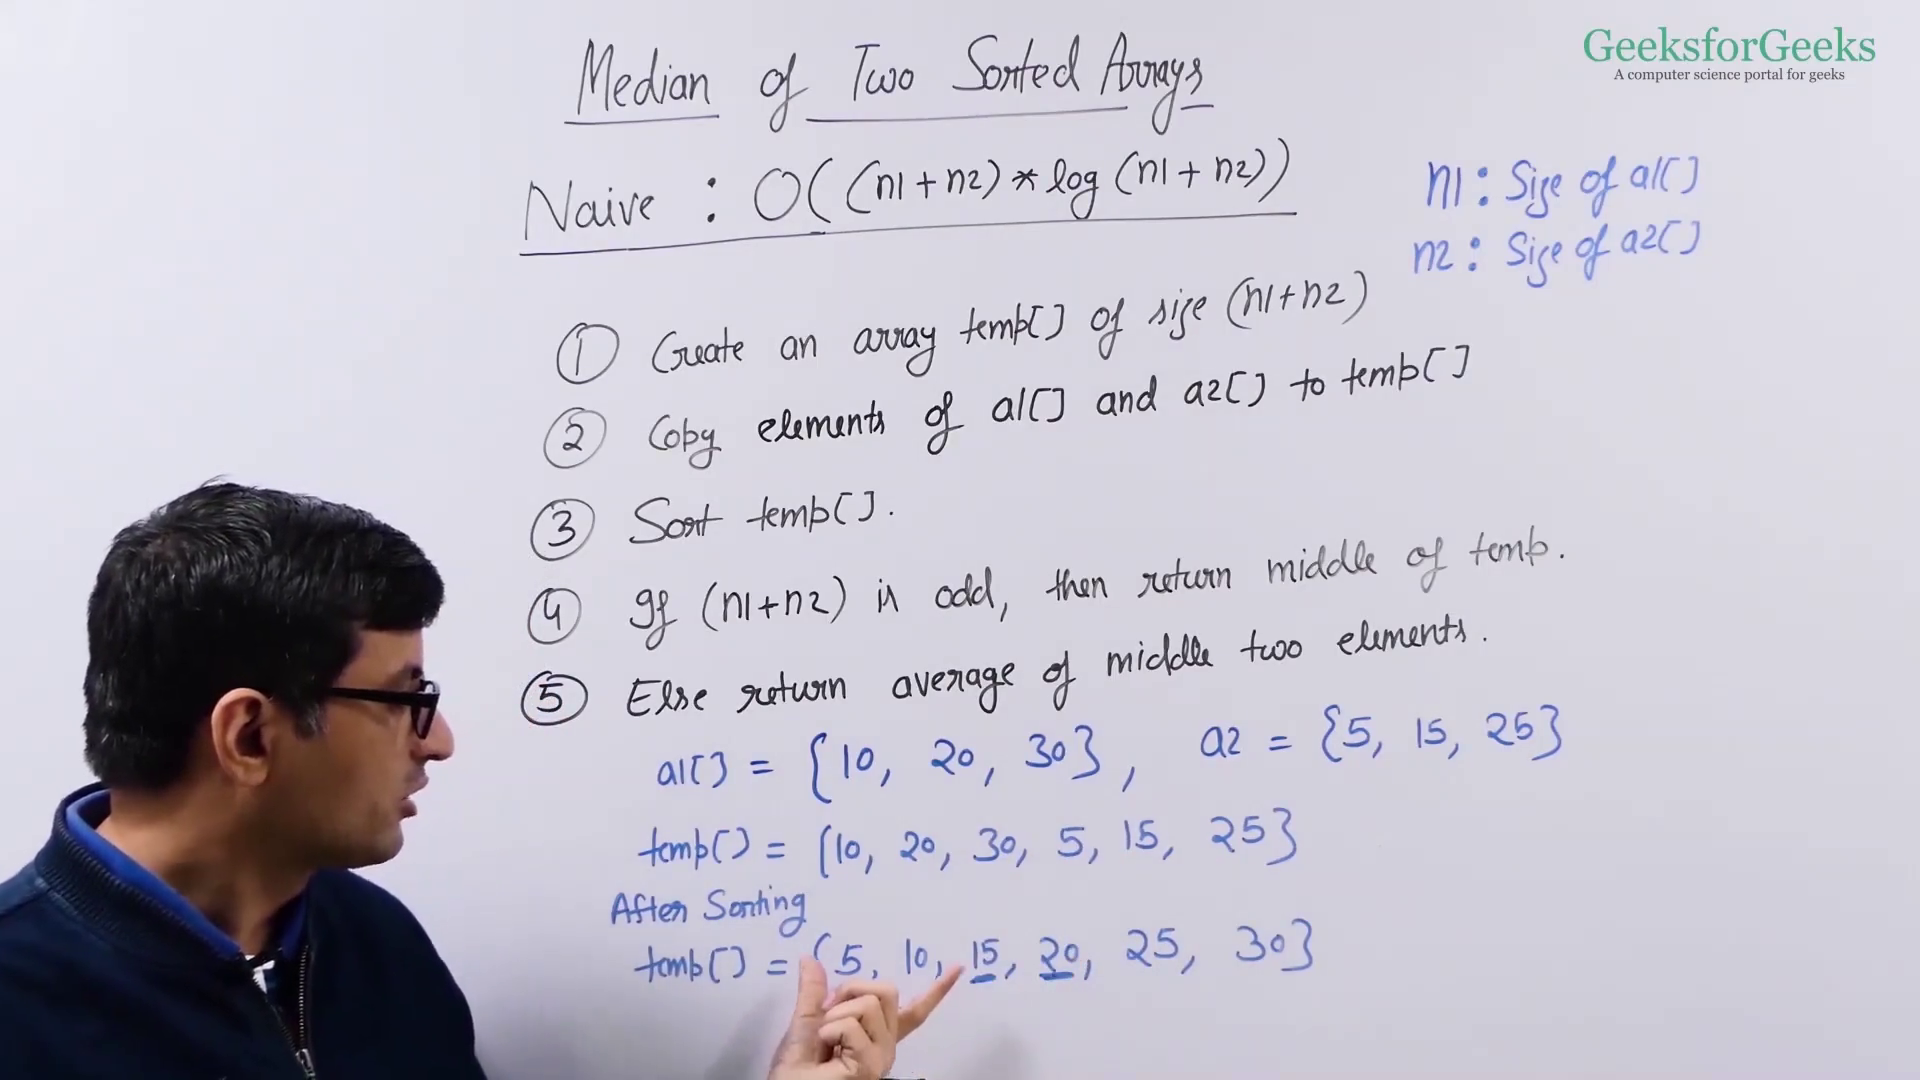 GeeksforGeeks
A computer science portal for geeks
Median of Two Sorted Arrays
Naive : O((n1+n2)*log(n1+n2))
n1 : Size of a1[]
n2 : Size of a2[]
1 Create an array temp[] of size (n1+n2)
2 Copy elements of a1[] and a2[] to temp[]
3 Sort temp[].
4 If (n1+n2) is odd, then return middle of temp.
5 Else return average of middle two elements.
a1[] = {10, 20, 30}, a2 = {5, 15, 25}
temp[] = {10, 20, 30, 5, 15, 25}
After Sorting
temp[] = {5, 10, 15, 20, 25, 30}